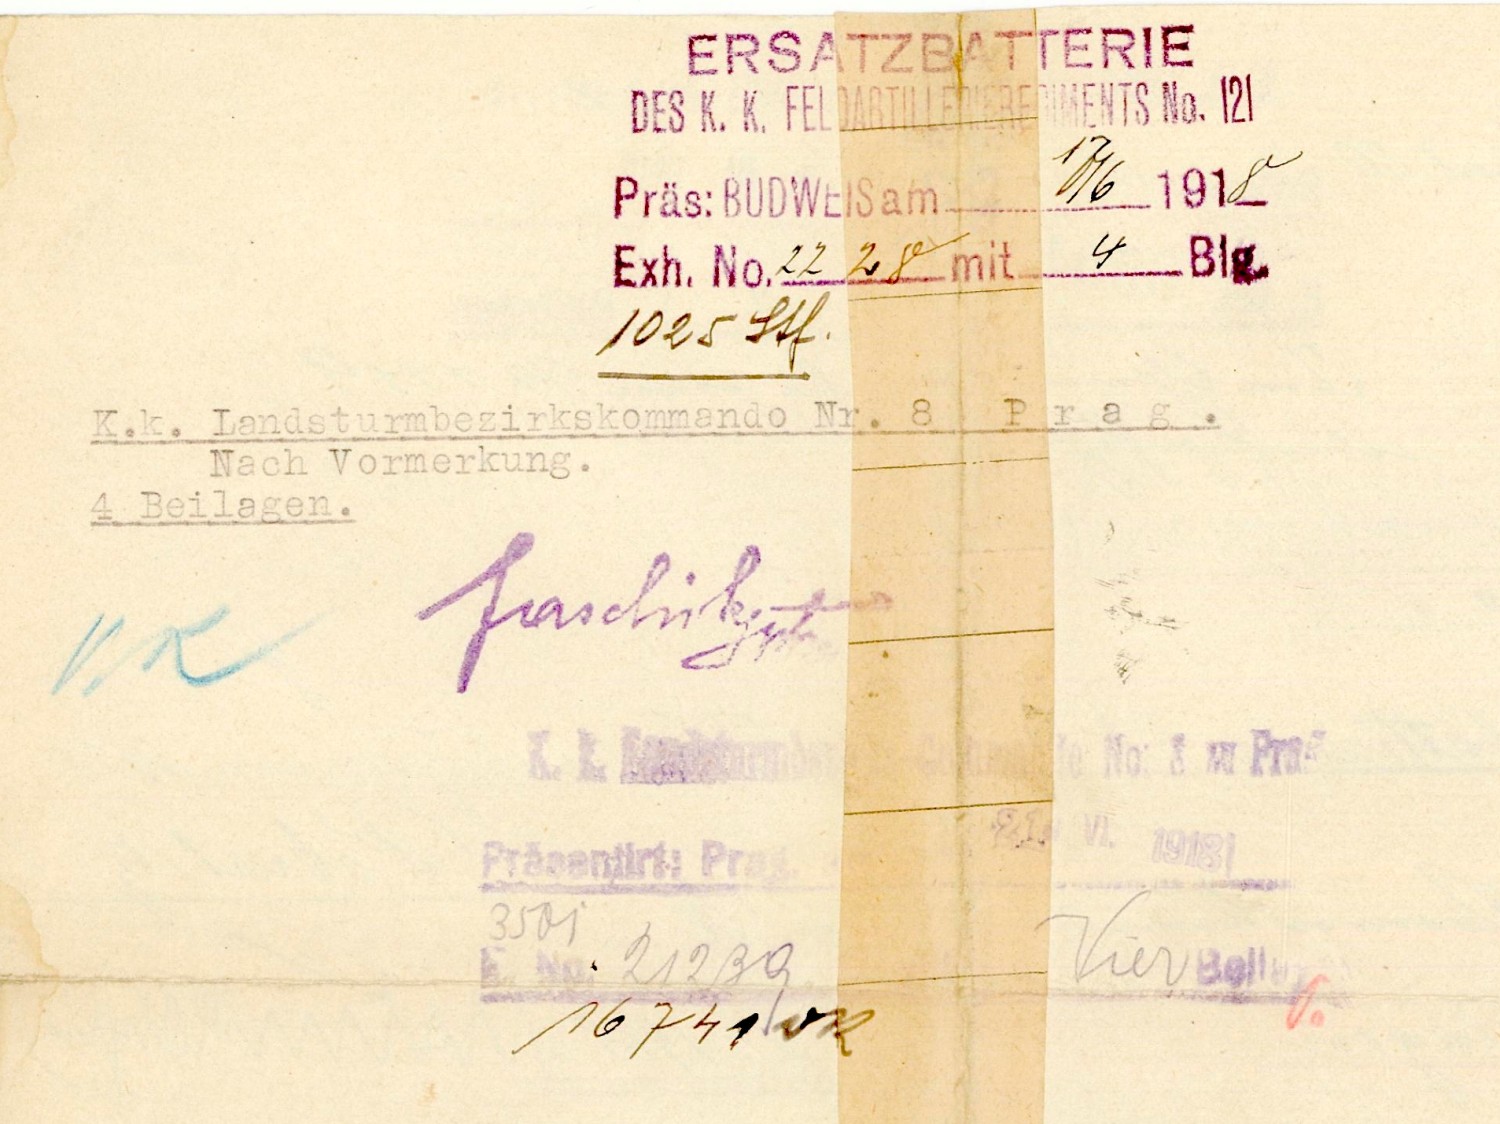 ERSATZBATTERIE
DES K. K. FELDARTILLERIEREGIMENTS No. 121
Präs: BUDWEIS am 17/6 1918
Exh. No. 2228 mit 4 Blg.
1025 Stf.
K.k. Landsturmbezirkskommando Nr. 8 Prag.
Nach Vormerkung.
4 Beilagen.
V.K
K. k. No: 8 in Prag
Präsentirt: Prag, 21. VI. 1918
3501
E. No: 21239 Vier Beil
16741